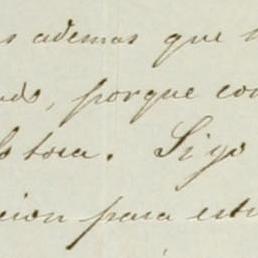 s ademas que
do, porque con
toca. Si yo
cion para estu